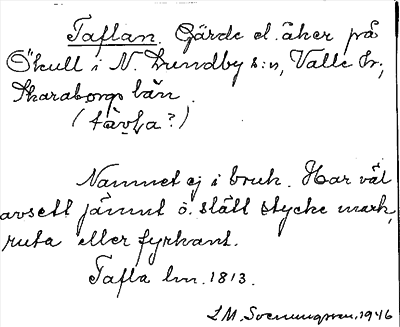 Taflan. Gärde el. åker på
Ökull i N. Lundby s:n, Valle hr,
Skaraborgs län.
(tavła?)
Namnet ej i bruk. Har väl
avsett jämnt o. slätt stycke mark,
ruta eller fyrkant.
Tafla lm. 1813.
L.M. Svenungsson, 1946